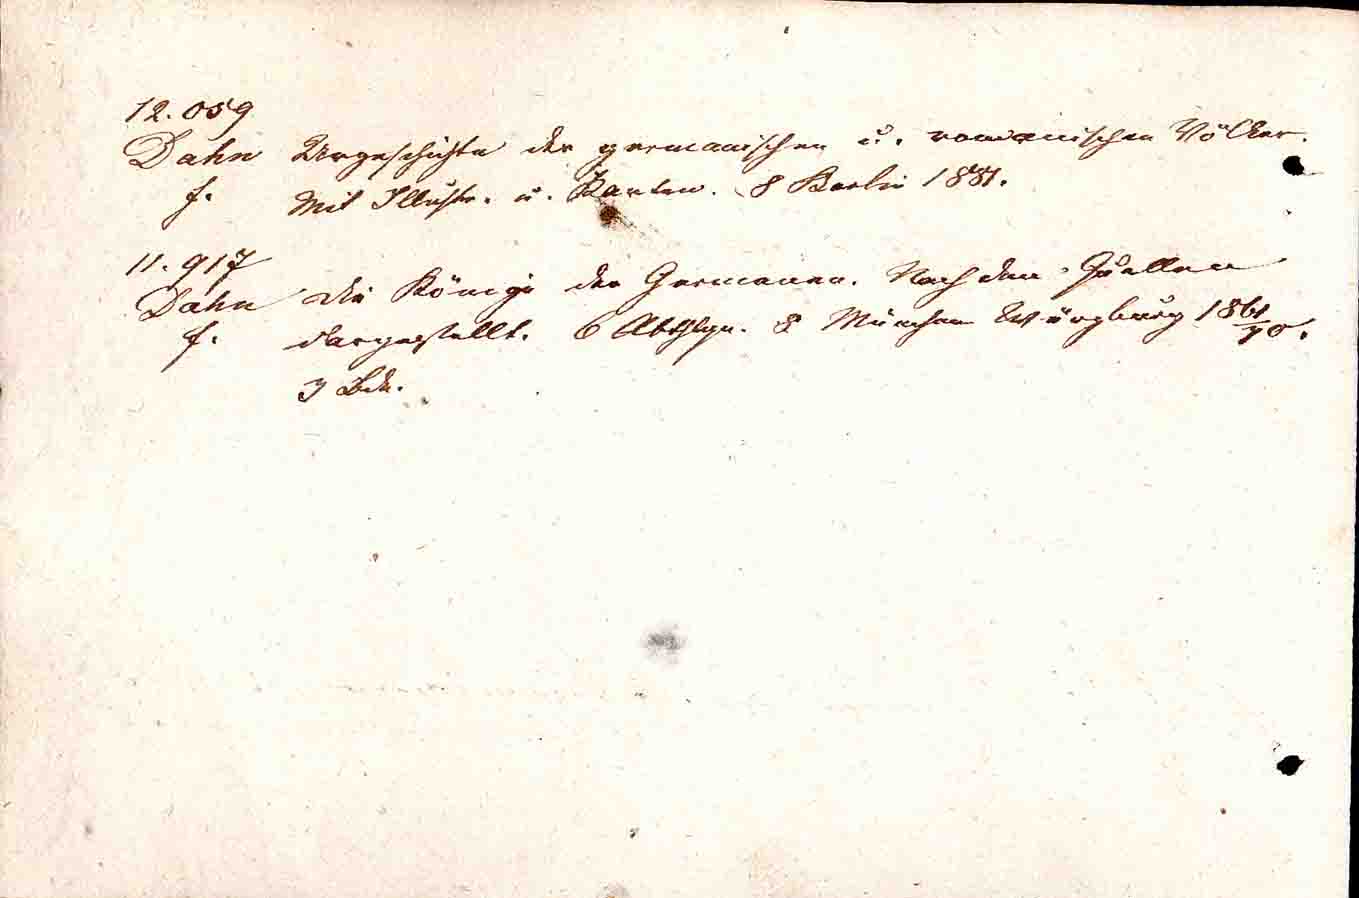 12.059
Dahn Urgeschichte der germanischen u. romanischen Völker.
f. Mit Illustr. u. Karten. 8 Berlin 1881.
11.917
Dahn Die Könige der Germanen. Nach den Quellen
f. dargestellt. 6 Abthlgn. 8 München Würzburg 1861/70.
3 Bde.